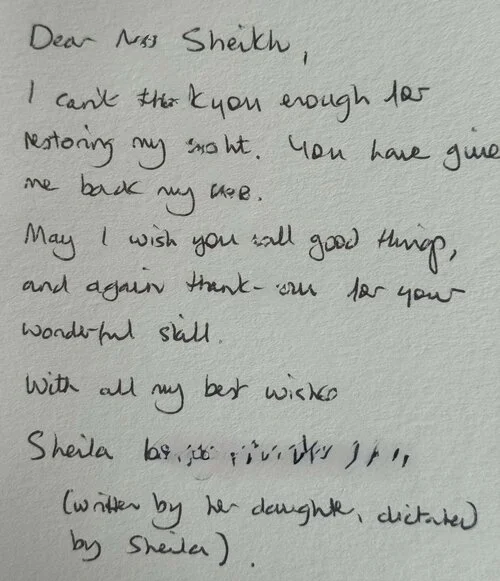 Dear Sheikh,
I can't thank you enough for
restoring my sight. You have give
me back my
May I wish you all good things,
and again thank-you for your
wonderful skill.
With all my best wishes
Sheila
(written by her daughter, dictated
by Sheila).